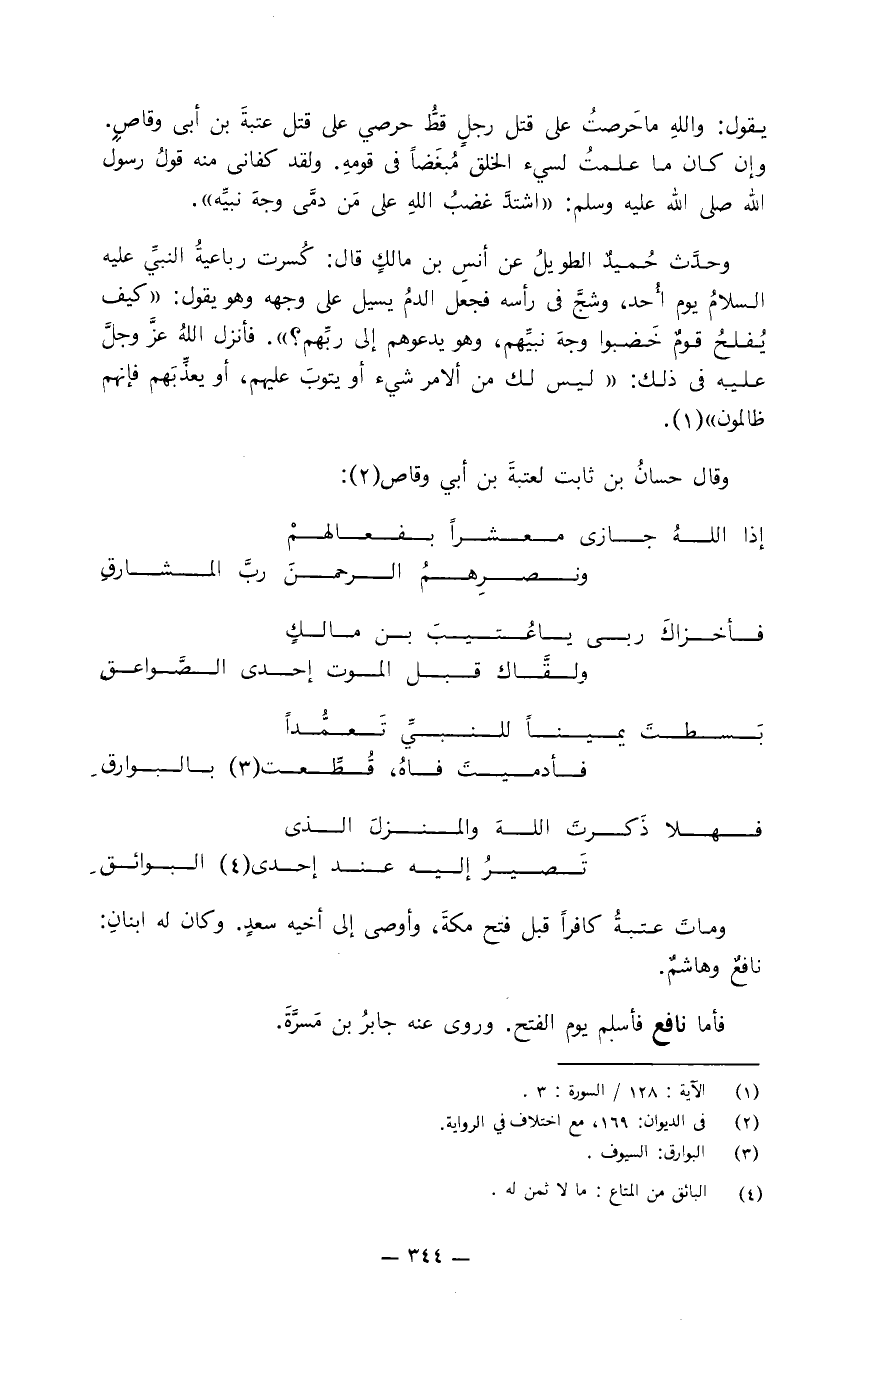 يقول: واللهِ ماحَرصتُ على قتل رجلٍ قطُّ حرصي على قتل عتبةَ بن أبى وقاصٍ.
وإن كان ما علمتُ لسيء الخلق مُبغَضاً فى قومهِ. ولقد كفانى منه قولُ رسول
الله صلى الله عليه وسلم: «اشتدَّ غضبُ اللهِ على مَن دمَّى وجهَ نبيِّه».
وحدَّث حُميدٌ الطويلُ عن أنسِ بن مالكٍ قال: كُسرت رباعيةُ النبيِّ عليه
السلامُ يوم أُحد، وشجَّ فى رأسه فجعل الدمُ يسيل على وجهه وهو يقول: «كيف
يُفلحُ قومٌ خَضبوا وجهَ نبيِّهم، وهو يدعوهم إلى ربِّهم؟». فأنزل اللهُ عزَّ وجلَّ
عليه فى ذلك: « ليس لك من ألامر شيء أو يتوبَ عليهم، أو يعذِّبَهم فإنهم
ظالمون»(١).
وقال حسانُ بن ثابت لعتبةَ بن أبي وقاص(٢):
إذا اللهُ جازى معشراً بفعالهمْ
ونصرِهمُ الرحمنَ ربَّ المشارقِ
فأخزاكَ ربى ياعُتيبَ بن مالكٍ
ولقَّاك قبل الموت إحدى الصَّواعق
بَسطتَ يميناً للنبيِّ تَعمُّداً
فأدميتَ فاهُ، قُطِّعت(٣) بالبوارق.
فهلا ذَكرتَ اللهَ والمنزلَ الذى
تَصيرُ إليه عند إحدى(٤) البوائق.
وماتَ عتبةُ كافراً قبل فتح مكةَ، وأوصى إلى أخيه سعدٍ. وكان له ابنانِ:
نافعٌ وهاشمٌ.
فأما نافع فأسلم يوم الفتح. وروى عنه جابرُ بن مَسرَّةَ.
(١) الآية : ١٢٨ / السورة : ٣ .
(٢) فى الديوان: ١٦٩، مع اختلاف في الرواية.
(٣) البوارق: السيوف .
(٤) البائق من المتاع : ما لا ثمن له .
— ٣٤٤ —